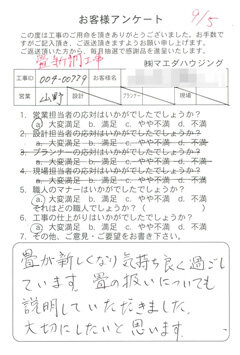 お客様アンケート
9/5
この度は工事のご用命を頂きありがとうございました。お手数で
すがご記入頂き、ご返送頂きますようお願い申し上げます。
ご返送頂いた方から、毎月抽選で感謝品を進呈いたします。
畳新調工事
㈱マエダハウジング
工事ID 009-00779 お客様名
営業 山野 設計 プランナー 現場
1. 営業担当者の応対はいかがでしたでしょうか？
a. 大変満足 b. 満足 c. やや不満 d. 不満
2. 設計担当者の応対はいかがでしたでしょうか？
a. 大変満足 b. 満足 c. やや不満 d. 不満
3. プランナーの応対はいかがでしたでしょうか？
a. 大変満足 b. 満足 c. やや不満 d. 不満
4. 現場担当者の応対はいかがでしたでしょうか？
a. 大変満足 b. 満足 c. やや不満 d. 不満
5. 職人のマナーはいかがでしたでしょうか？
a. 大変満足 b. 満足 c. やや不満 d. 不満
それはどの職人でしょうか？（
6. 工事の仕上がりはいかがでしたでしょうか？
a. 大変満足 b. 満足 c. やや不満 d. 不満
7. その他、ご意見・ご要望をお書き下さい。
畳が新しくなり気持ち良く過ごし
ています。畳の扱いについても
説明していただきました。
大切にしたいと思います。